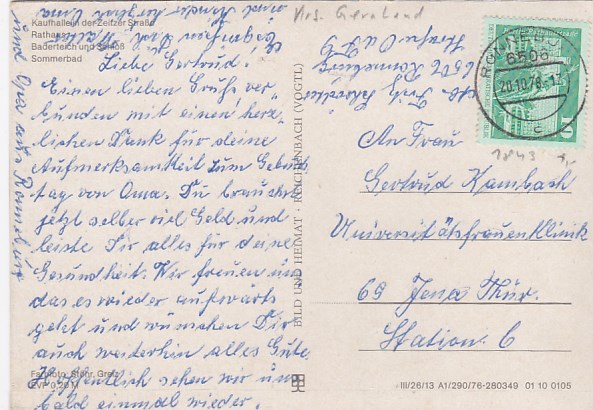 Kaufhallen der Zeitzer Straße
Rathaus
Baderteich und Schloß
Sommerbad
Liebe Gertrud!
Einen lieben Gruß ver-
bunden mit einen herz-
lichen Dank für deine
Aufmerksamkeit zum Geburts
tag von Oma. Du brauchst
jetzt selber viel Geld und
leiste Dir alles für deine
Gesundheit. Wir freuen uns
das es wieder aufwärts
geht und wünschen Dir
auch weiterhin alles Gute.
Hoffentlich sehen wir uns
bald einmal wieder.
und Opa aus Ronneburg
Farbfoto: Stöhr, Greiz
EVP 0,20 M
BILD UND HEIMAT · REICHENBACH (VOGTL)
Abs. Fritz
6502 Ronneburg
Straße
RONNEBURG
6506
20.10.78-13
c
10
1843
An Frau
Gertrud Kambach
Universitätsfrauenklinik
69 Jena Thür.
Station 6
III/26/13 A1/290/76-280349 01 10 0105